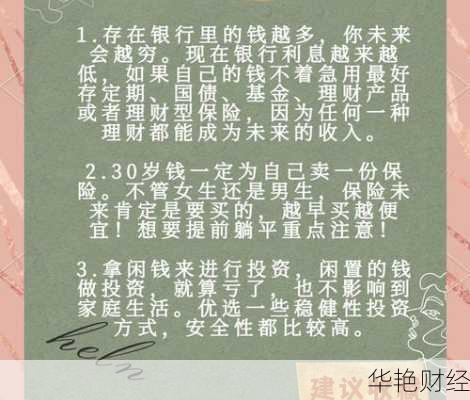 1.存在银行里的钱越多，你未来
会越穷。现在银行利息越来越
低，如果自己的钱不着急用最好
存定期、国债、基金、理财产品
或者理财型保险，因为任何一种
理财都能成为未来的收入。
2.30岁钱一定为自己卖一份保
险。不管女生还是男生，保险未
来肯定是要买的，越早买越便
宜！想要提前躺平重点注意！
3.拿闲钱来进行投资，闲置的钱
做投资，就算亏了，也不影响到
家庭生活。优选一些稳健性投资
方式，安全性都比较高。
heln
建议收藏
华艳财经